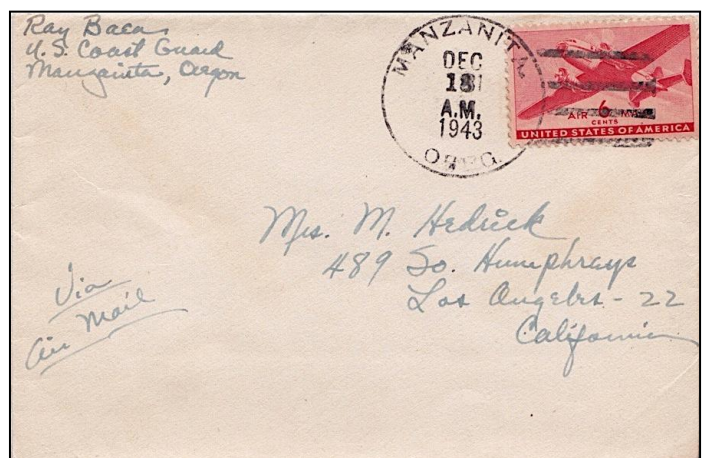 Ray Baca
U.S. Coast Guard
Manzainta, Oregon
MANZANITA
DEC
18
A.M.
1943
OREG.
AIR 6 MAIL
CENTS
UNITED STATES OF AMERICA
Mrs. M. Hedrick
489 So. Humphreys
Los Angeles - 22
California
Via
Air Mail